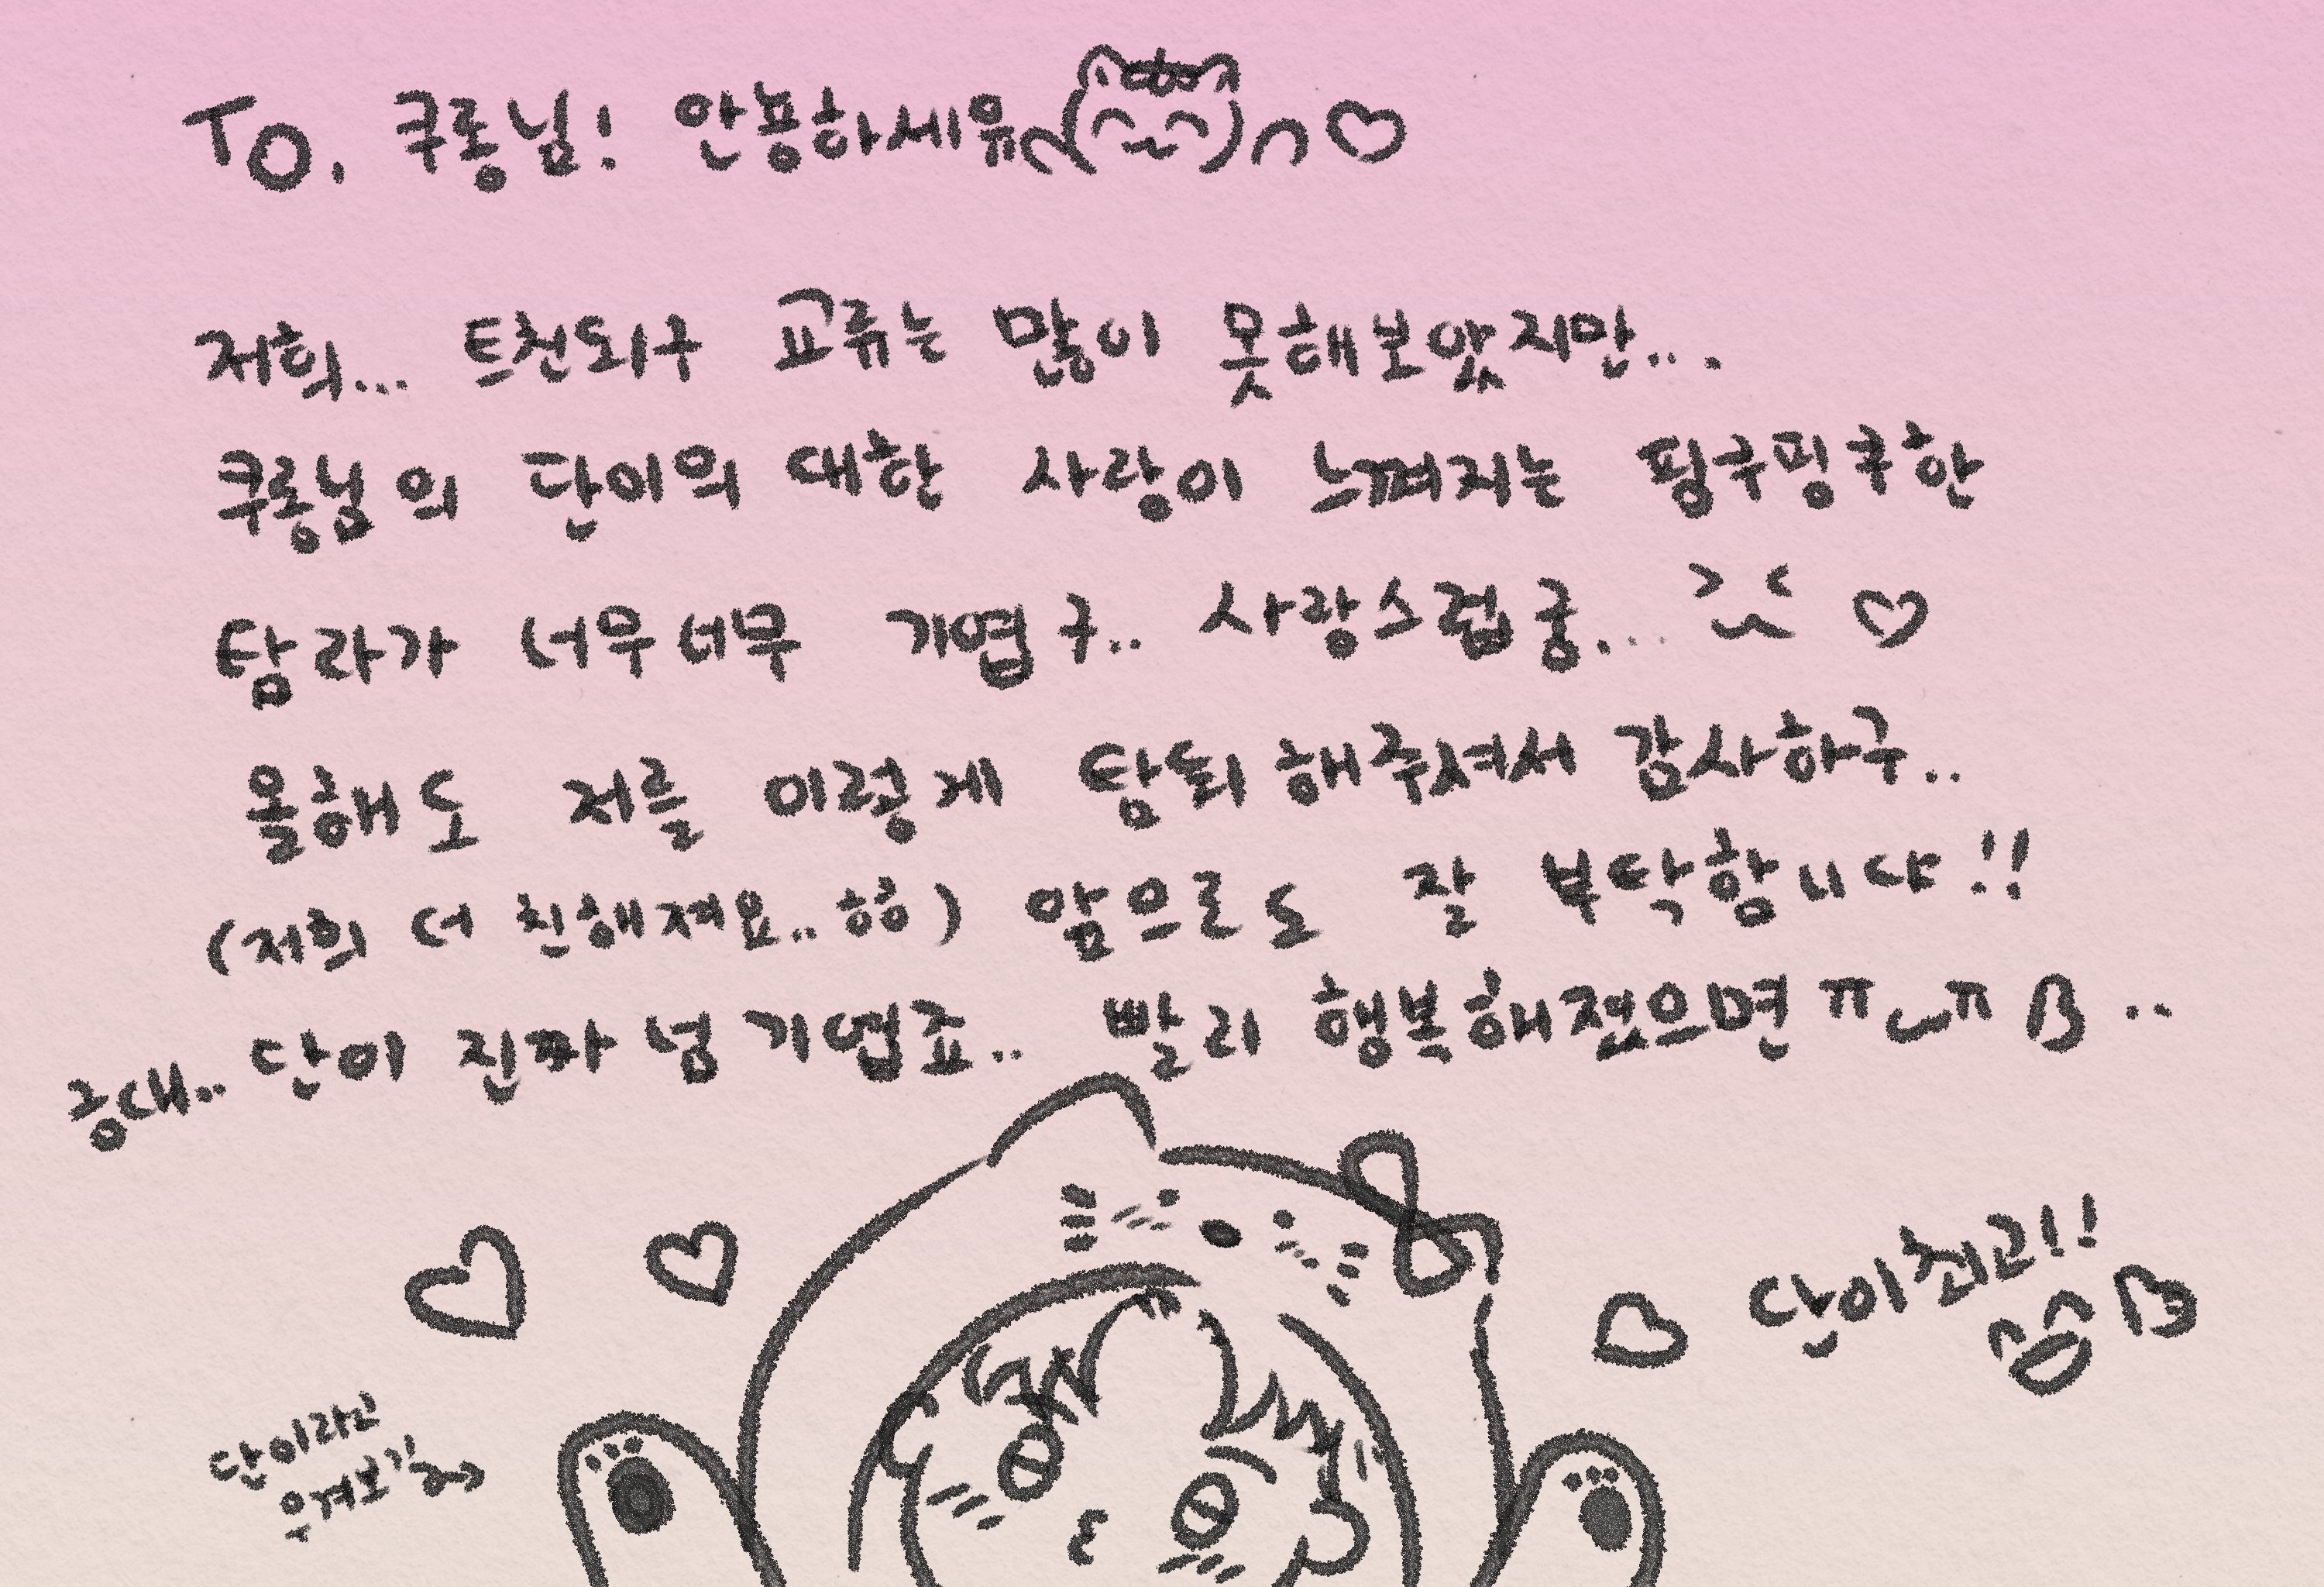 To. 쿠롱님! 안뇽하세유
저희... 트친되구 교류는 많이 못해보았지만...
쿠롱님의 단이의 대한 사랑이 느껴지는 핑구핑구한
탐라가 너무너무 기엽구.. 사랑스럽궁...
올해도 저를 이렇게 탐되해주셔서 감사하구..
(저희 더 친해져요..ㅎㅎ) 앞으로도 잘 부탁함니다!!
긍대.. 단이 진짜 넘 기엽죠.. 빨리 행복해졌으면 ㅠㅠ..
단이최고!!
단이라고
우겨보기